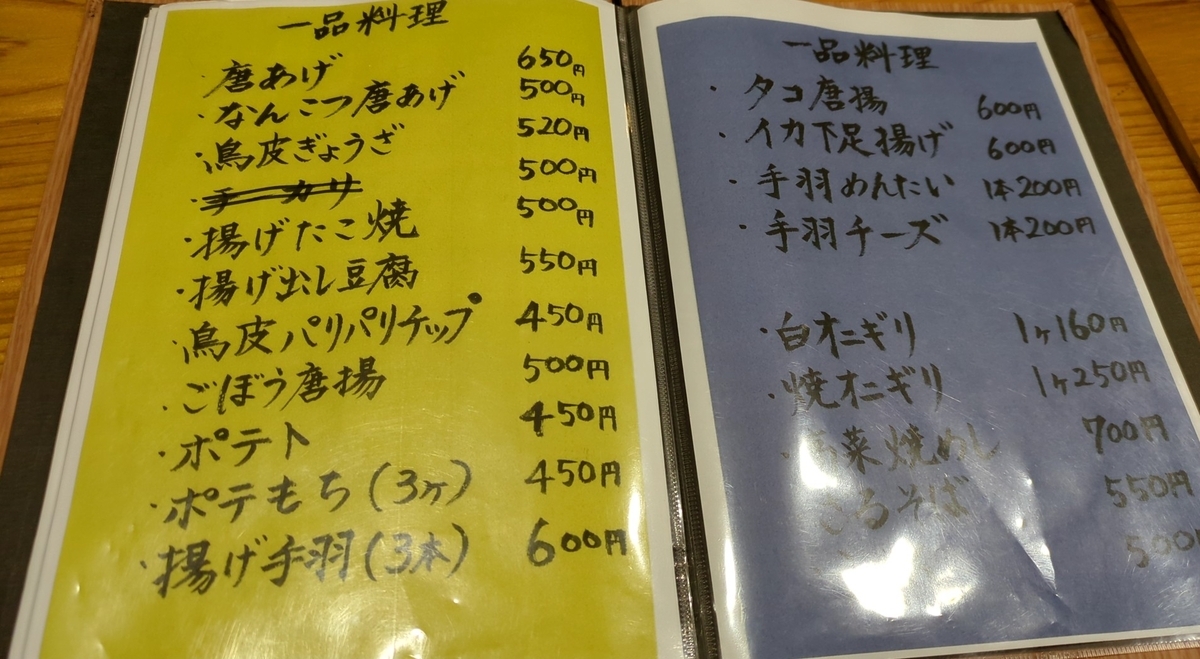 一品料理
・唐あげ 650円
・なんこつ唐あげ 500円
・鳥皮ぎょうざ 520円
・手カサ 500円
・揚げたこ焼 500円
・揚げ出し豆腐 550円
・鳥皮パリパリチップ 450円
・ごぼう唐揚 500円
・ポテト 450円
・ポテもち(3ヶ) 450円
・揚げ手羽(3本) 600円
一品料理
・タコ唐揚 600円
・イカ下足揚げ 600円
・手羽めんたい 1本200円
・手羽チーズ 1本200円
・白オニギリ 1ヶ160円
・焼オニギリ 1ヶ250円
菜焼めし 700円
ざるそば 550円
500